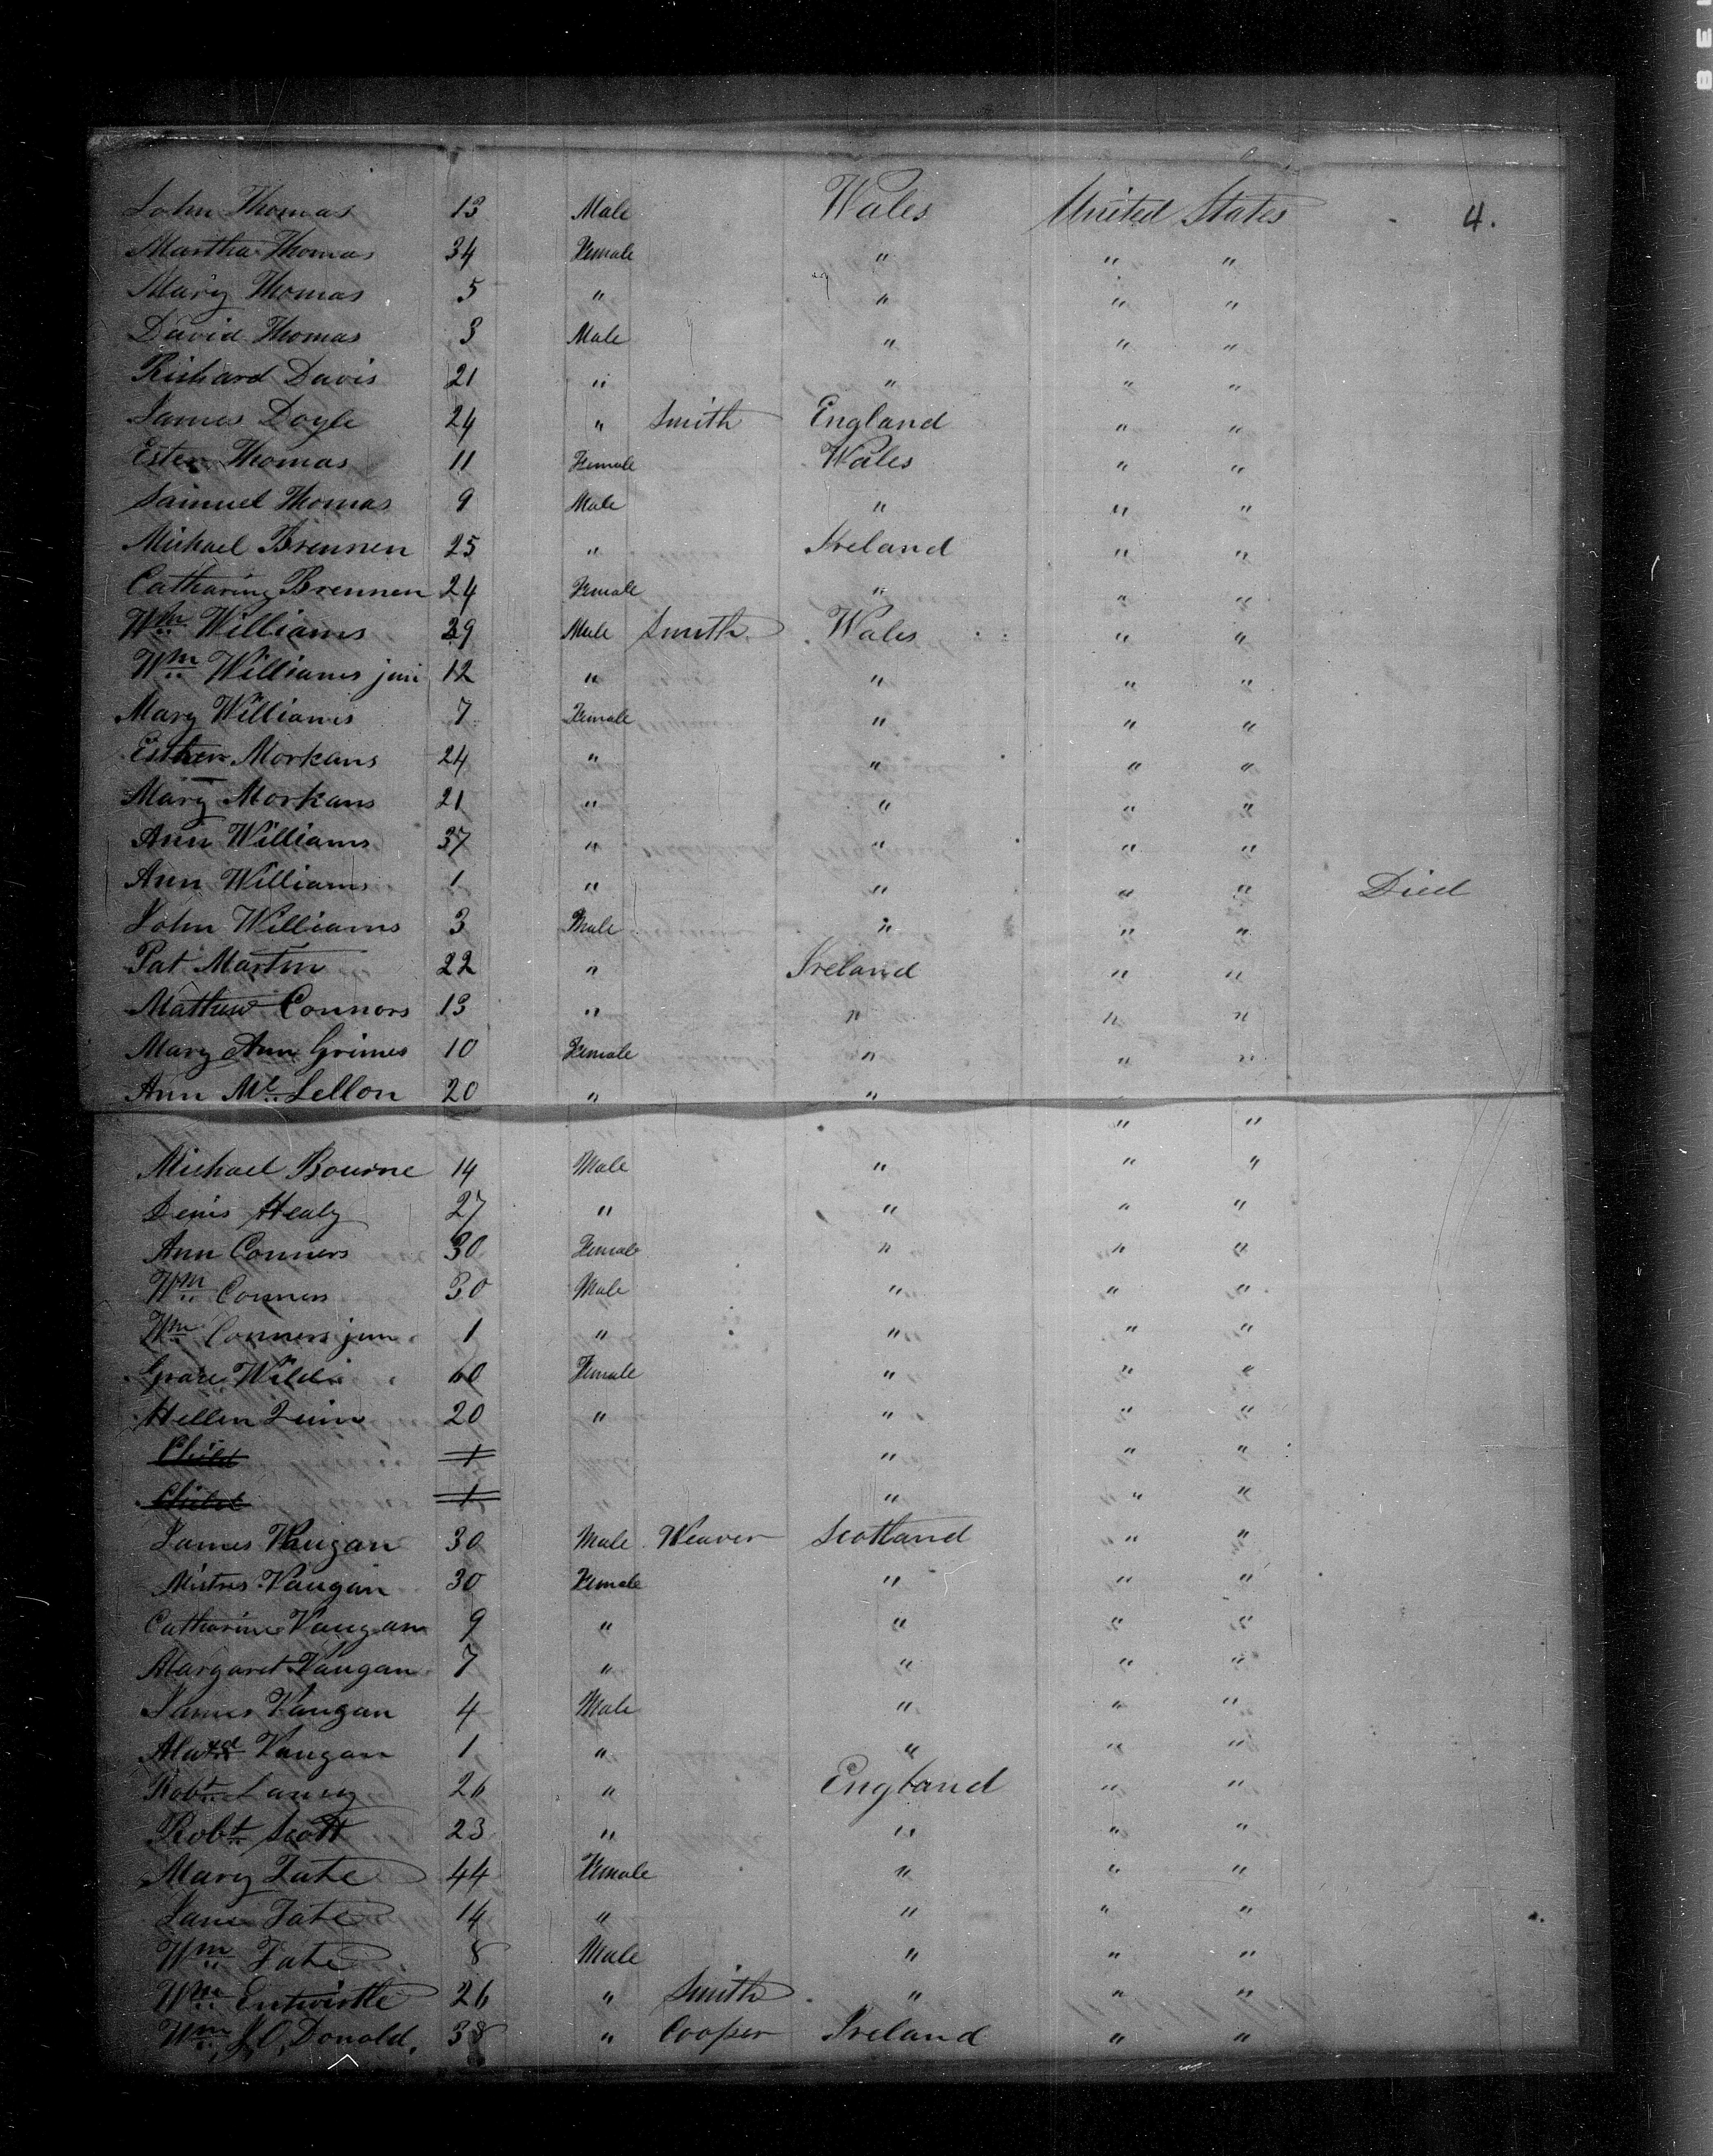 John Thomas 13 Male Wales United States 4.
Martha Thomas 34 Female " " "
Mary Thomas 5 " " " "
David Thomas 3 Male " " "
Richard Davis 21 " " " "
James Doyle 24 " Smith England " "
Ester Thomas 11 Female Wales " "
Samuel Thomas 9 Male " " "
Michael Brennen 25 " Ireland " "
Catharine Brennen 24 Female " " "
Wm Williams 39 Male Smith Wales " "
Wm Williams jun 12 " " " "
Mary Williams 7 Female " " "
Esther Morkans 24 " " " "
Mary Morkans 21 " " " "
Ann Williams 37 " " " "
Ann Williams 1 " " " " Died
John Williams 3 Male " " "
Pat Martin 22 " Ireland " "
Mathew Connors 13 " " " "
Mary Ann Grimes 10 Female " " "
Ann Mc Lellon 20 " " " "
Michael Bourne 14 Male " " "
Denis Healy 27 " " " "
Ann Conners 30 Female " " "
Wm Conners 30 Male " " "
Wm Conners jun 1 " " " "
Grace 60 Female " " "
Hellen 20 " " " "
Child 1 " " "
Child 1 " " "
James Vaugan 30 Male Weaver Scotland " "
Mistres Vaugan 30 Female " " "
Catharine Vaugan 9 " " " "
Margaret Vaugan 7 " " " "
James Vaugan 4 Male " " "
Alexd Vaugan 1 " " " "
Robt 26 " England " "
Robt Scott 23 " " " "
Mary Tate 44 Female " " "
Jane Tate 14 " " " "
Wm Tate 8 Male " " "
Wm Entwistle 26 " Smith " " "
Wm J O, Donald. 38 " Cooper Ireland " "